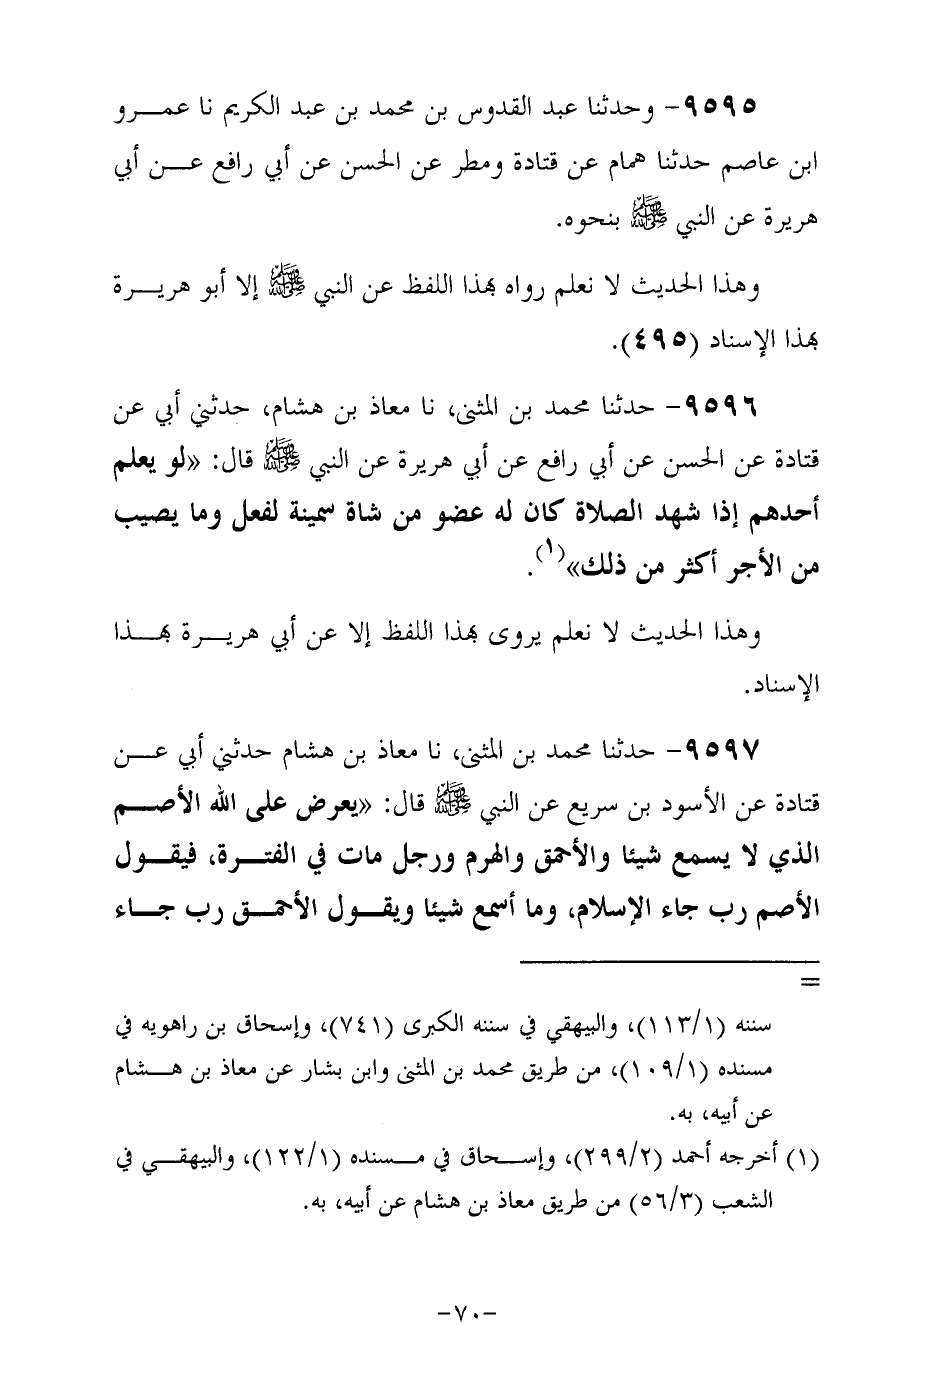 ٩٥٩٥- وحدثنا عبد القدوس بن محمد بن عبد الكريم نا عمـــرو
ابن عاصم حدثنا همام عن قتادة ومطر عن الحسن عن أبي رافع عـــن أبي
هريرة عن النبي ﷺ بنحوه.
وهذا الحديث لا نعلم رواه بهذا اللفظ عن النبي ﷺ إلا أبو هريـــرة
بهذا الإسناد (٤٩٥).
٩٥٩٦- حدثنا محمد بن المثنى، نا معاذ بن هشام، حدثني أبي عن
قتادة عن الحسن عن أبي رافع عن أبي هريرة عن النبي ﷺ قال: «لو يعلم
أحدهم إذا شهد الصلاة كان له عضو من شاة سمينة لفعل وما يصيب
من الأجر أكثر من ذلك»(١).
وهذا الحديث لا نعلم يروى بهذا اللفظ إلا عن أبي هريـــرة بهـــذا
الإسناد.
٩٥٩٧- حدثنا محمد بن المثنى، نا معاذ بن هشام حدثني أبي عـــن
قتادة عن الأسود بن سريع عن النبي ﷺ قال: «يعرض على الله الأصـــم
الذي لا يسمع شيئا والأحمق والهرم ورجل مات في الفتـــرة، فيقـــول
الأصم رب جاء الإسلام، وما أسمع شيئا ويقـــول الأحمـــق رب جـــاء
=
سننه (١١٣/١)، والبيهقي في سننه الكبرى (٧٤١)، وإسحاق بن راهويه في
مسنده (١٠٩/١)، من طريق محمد بن المثنى وابن بشار عن معاذ بن هـــشام
عن أبيه، به.
(١) أخرجه أحمد (٢٩٩/٢)، وإســـحاق في مـــسنده (١٢٢/١)، والبيهقـــي في
الشعب (٥٦/٣) من طريق معاذ بن هشام عن أبيه، به.
-٧٠-